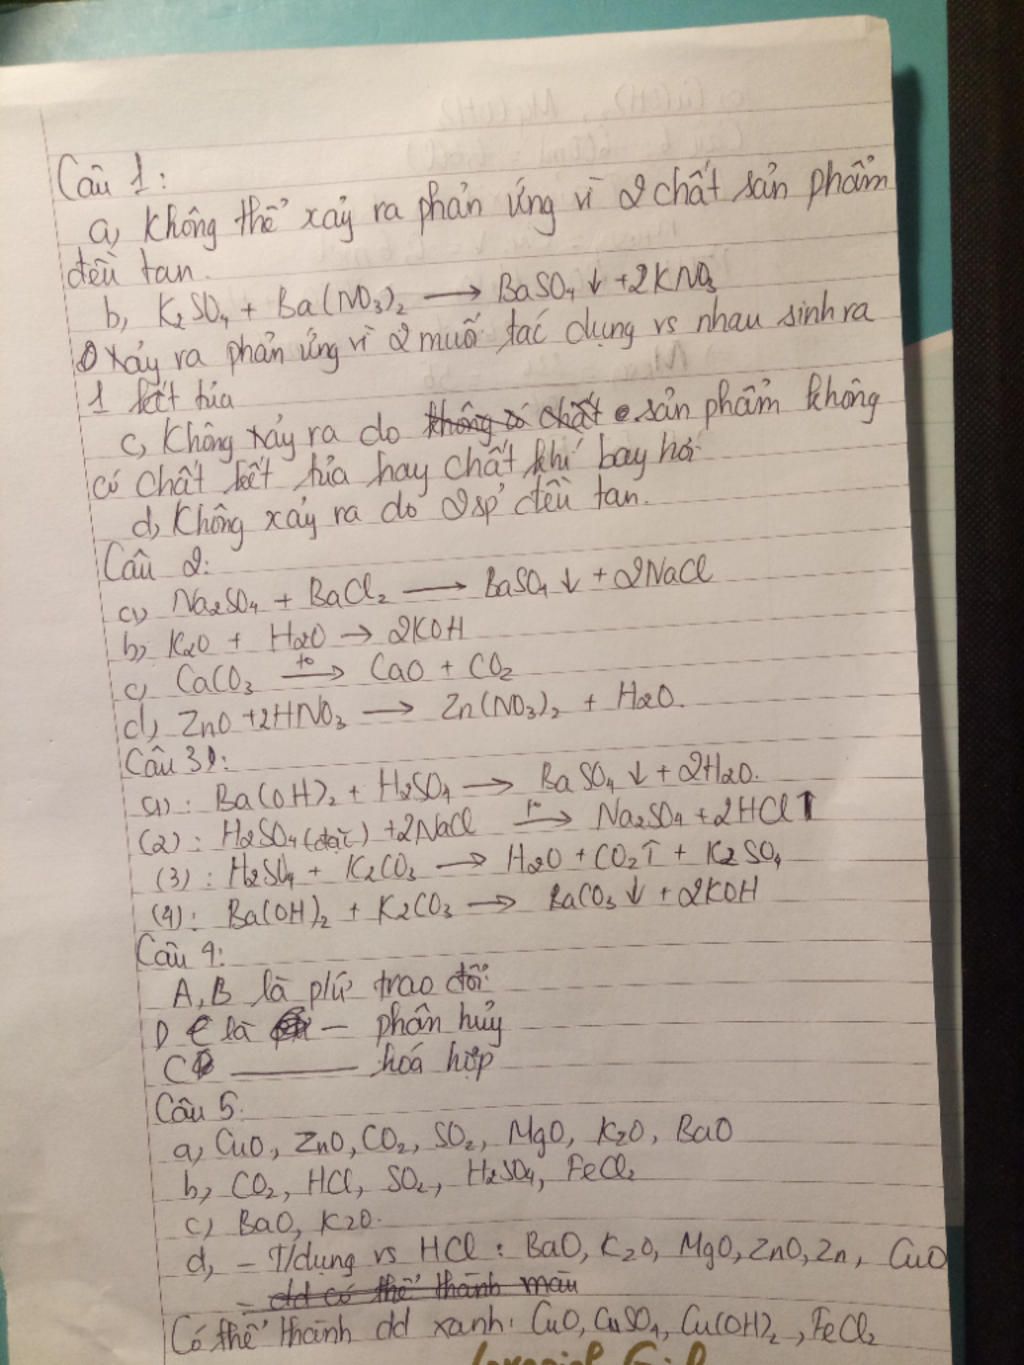 Câu 1:
a, Không thể xảy ra phản ứng vì 2 chất sản phẩm
đều tan.
b, K₂SO₄ + Ba(NO₃)₂ ⟶ BaSO₄ ↓ + 2KNO₃
Xảy ra phản ứng vì 2 muối tác dụng vs nhau sinh ra
1 kết tủa
c, Không xảy ra do không có chất sản phẩm không
có chất kết tủa hay chất khí bay hơi
d, Không xảy ra do 2 sp' đều tan.
Câu 2:
a, Na₂SO₄ + BaCl₂ ⟶ BaSO₄ ↓ + 2NaCl
b, K₂O + H₂O → 2KOH
c, CaCO₃ ⟶ t° CaO + CO₂
d, ZnO + 2HNO₃ ⟶ Zn(NO₃)₂ + H₂O.
Câu 3:
(1): Ba(OH)₂ + H₂SO₄ ⟶ BaSO₄ ↓ + 2H₂O.
(2): H₂SO₄ (đặc) + 2NaCl ⟶ t° Na₂SO₄ + 2HCl ↑
(3): H₂SO₄ + K₂CO₃ ⟶ H₂O + CO₂ ↑ + K₂SO₄
(4): Ba(OH)₂ + K₂CO₃ ⟶ BaCO₃ ↓ + 2KOH
Câu 4:
A, B là p/ứ trao đổi
D là — phân hủy
C — hoá hợp
Câu 5.
a, CuO, ZnO, CO₂, SO₂, MgO, K₂O, BaO
b, CO₂, HCl, SO₂, H₂SO₄, FeCl₂
c, BaO, K₂O.
d, - T/dụng vs HCl: BaO, K₂O, MgO, ZnO, Zn, CuO
- dd có thể thành màu
Có thể thành dd xanh: CuO, CuSO₄, Cu(OH)₂, FeCl₂